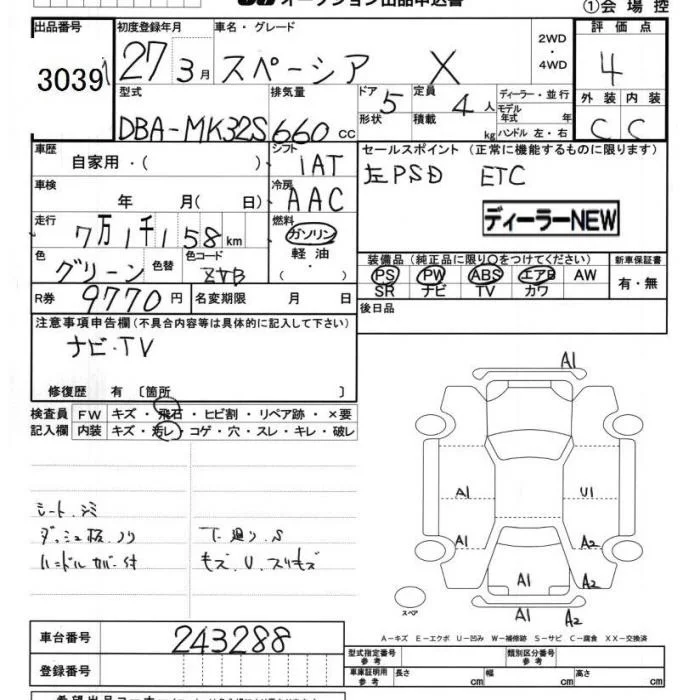 オークション出品申込書
①会場控
出品番号 初度登録年月 車名・グレード 2WD・4WD 評価点
3039 27 3月 スペーシア X 4
型式 排気量 ドア 5 定員 4人 ディーラー・並行 外装 内装
形状 積載 kg モデル年式 年 ハンドル 左・右
DBA-MK32S 660 cc C C
車歴 自家用・( ) シフト IAT セールスポイント (正常に機能するものに限ります)
車検 年 月( 日) 冷房 AAC 左PSD ETC
ディーラーNEW
走行 7万1千158km 燃料 ガソリン 軽油・( )
色 グリーン 色替 色コード
装備品(純正品に限り○をつけてください) 新車保証書
PS PW ABS エアB AW 有・無
SR ナビ TV カワ
R券 9770円 名変期限 月 日
後日品
注意事項申告欄(不具合内容等は具体的に記入して下さい)
ナビ・TV
修復歴 有 〔箇所 〕
検査員 FW キズ・飛石・ヒビ割・リペア跡・×要
記入欄 内装 キズ・汚レ・コゲ・穴・スレ・キレ・破レ
A1
A1 U1
A1 A2
A1
A1 A2
スペア
シート.シミ
ダッシュ板.ノリ 下廻り.S
ハンドルカバー付 キズ.U.スリキズ
A-キズ E-エクボ U-凹み W-補修跡 S-サビ C-腐食 XX-交換済
車台番号 243288
型式指定番号 参考 類別区分番号 参考
登録番号
車庫証明用 参考 長さ cm 幅 cm 高さ cm